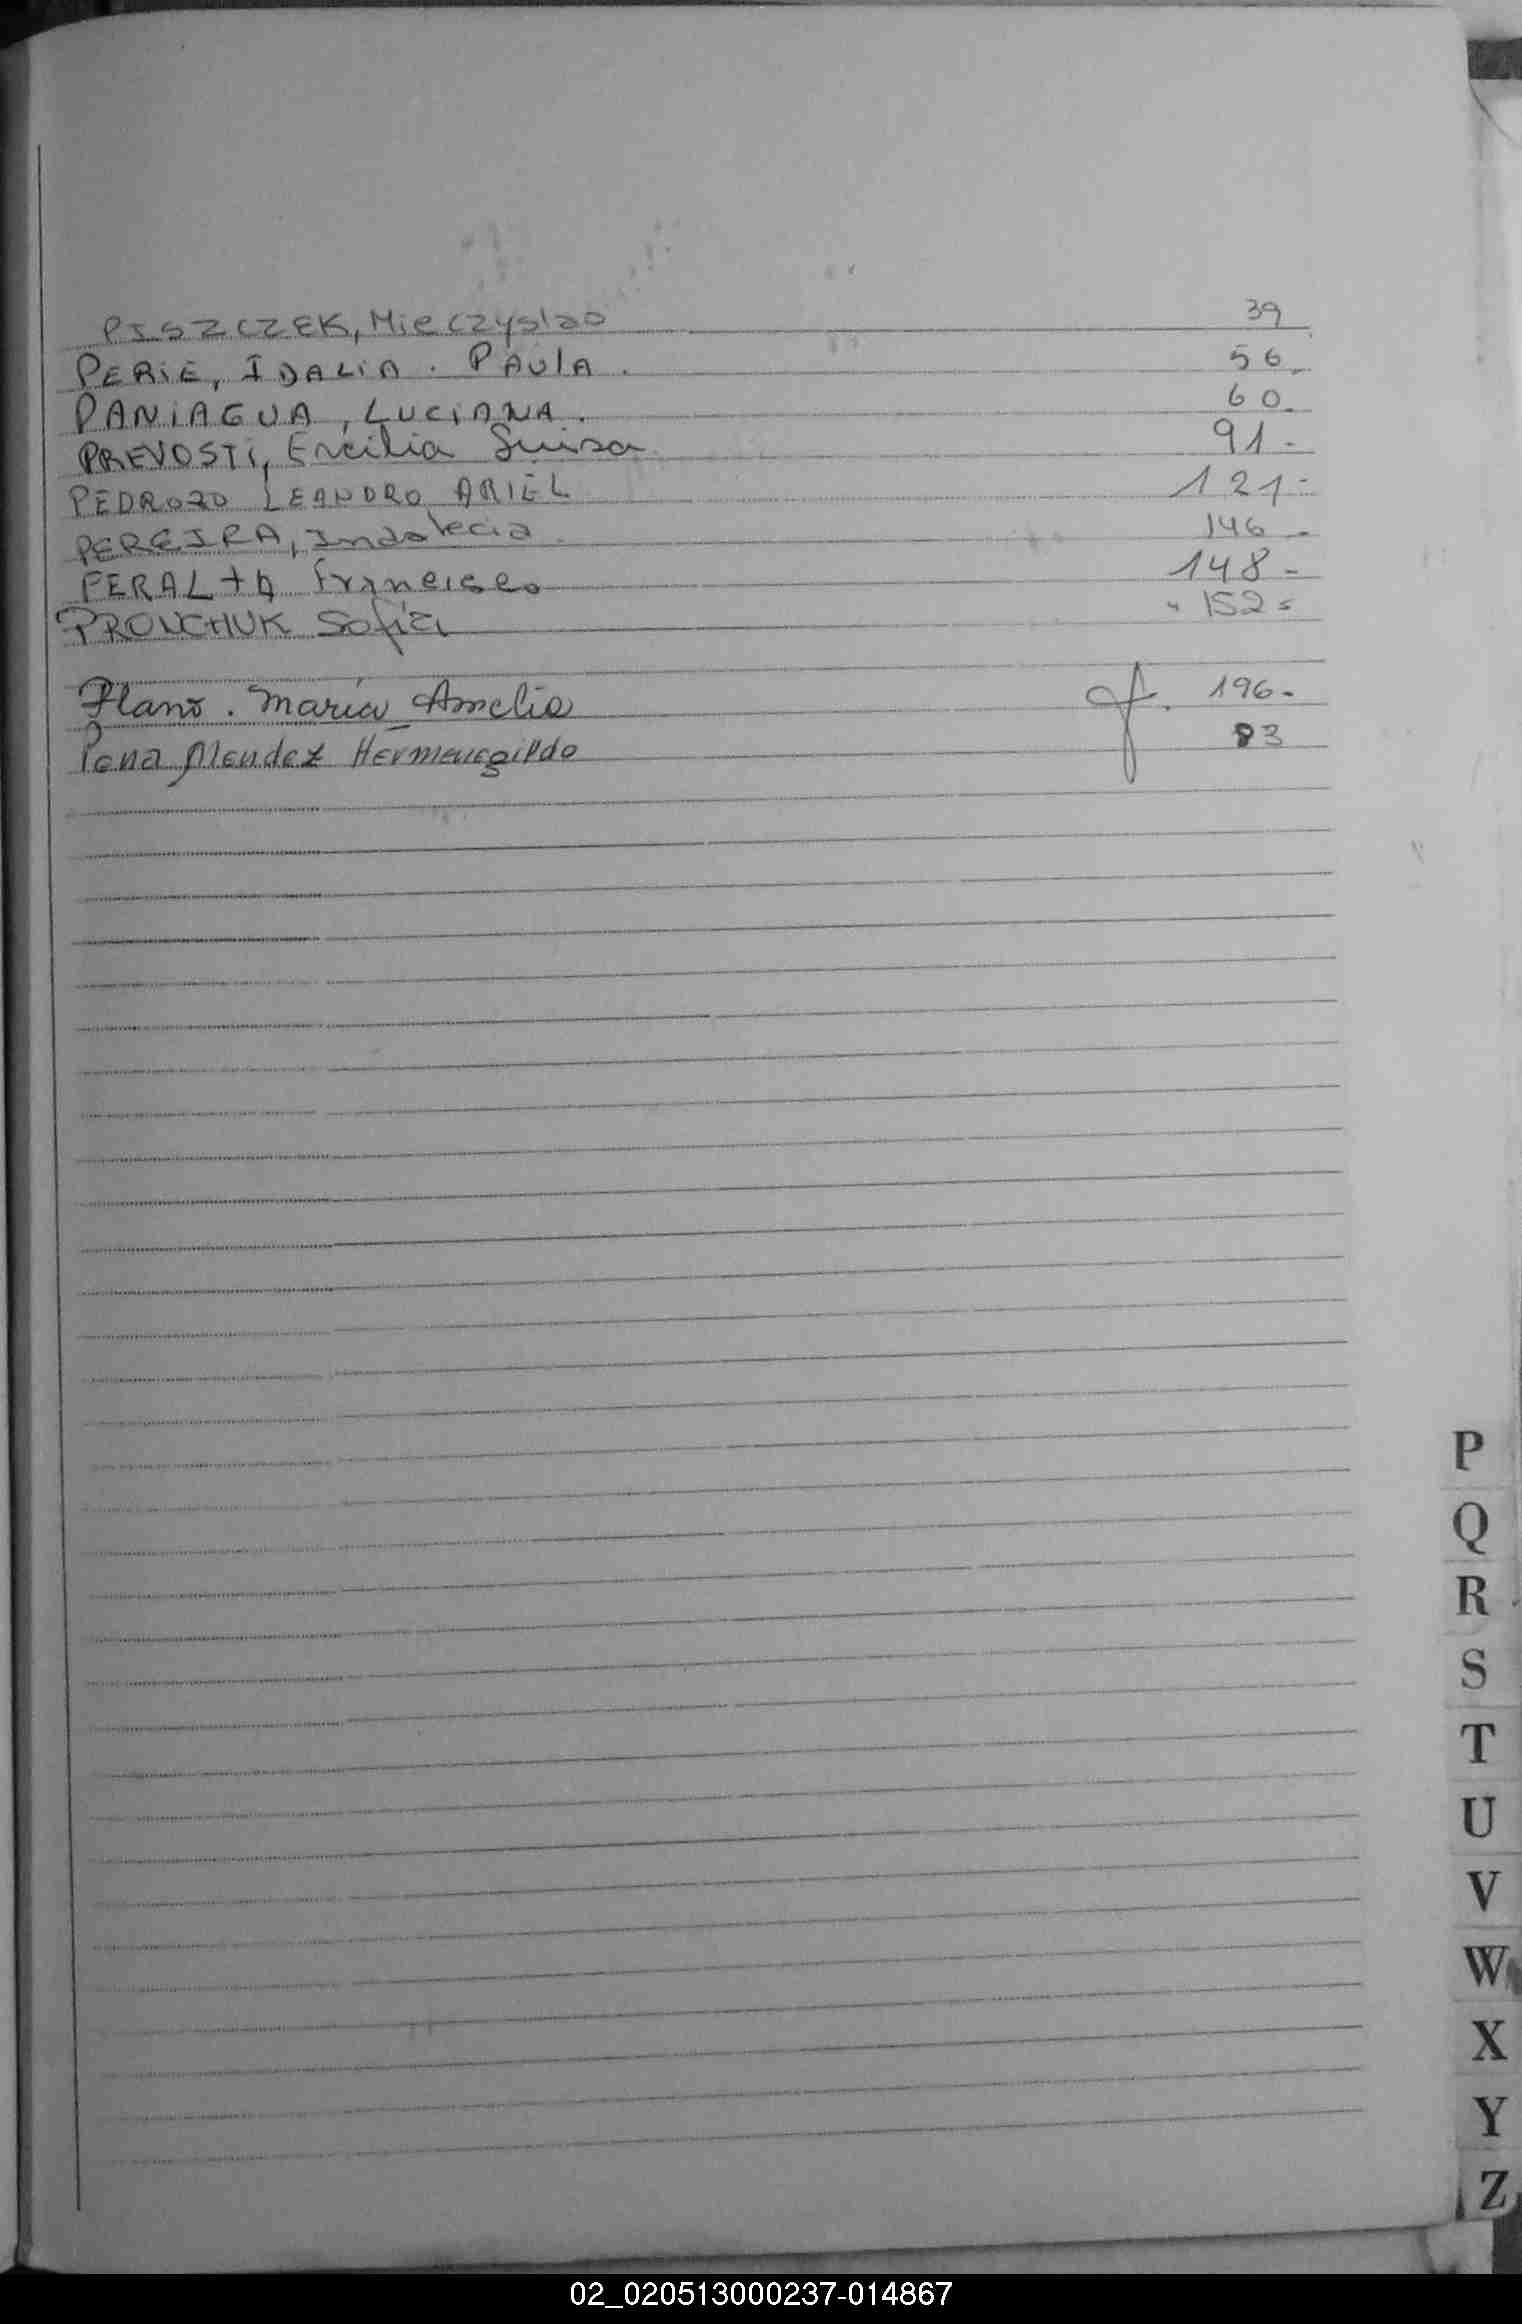 PISZCZEK, Mieczyslao 39
PERIE, IDALIA. PAULA. 56.
PANIAGUA, LUCIANA. 60.
PREVOSTI, Ercilia Luisa 91-
PEDROZO LEANDRO ARIEL 121-
PEREIRA, Indalecia. 146-
PERALTA Francisco 148-
PRONCHUK Sofia " 152=
Plano. María Amelia f. 196-
Pena Mendez Hermenegildo 93
P
Q
R
S
T
U
V
W
X
Y
Z
02_020513000237-014867